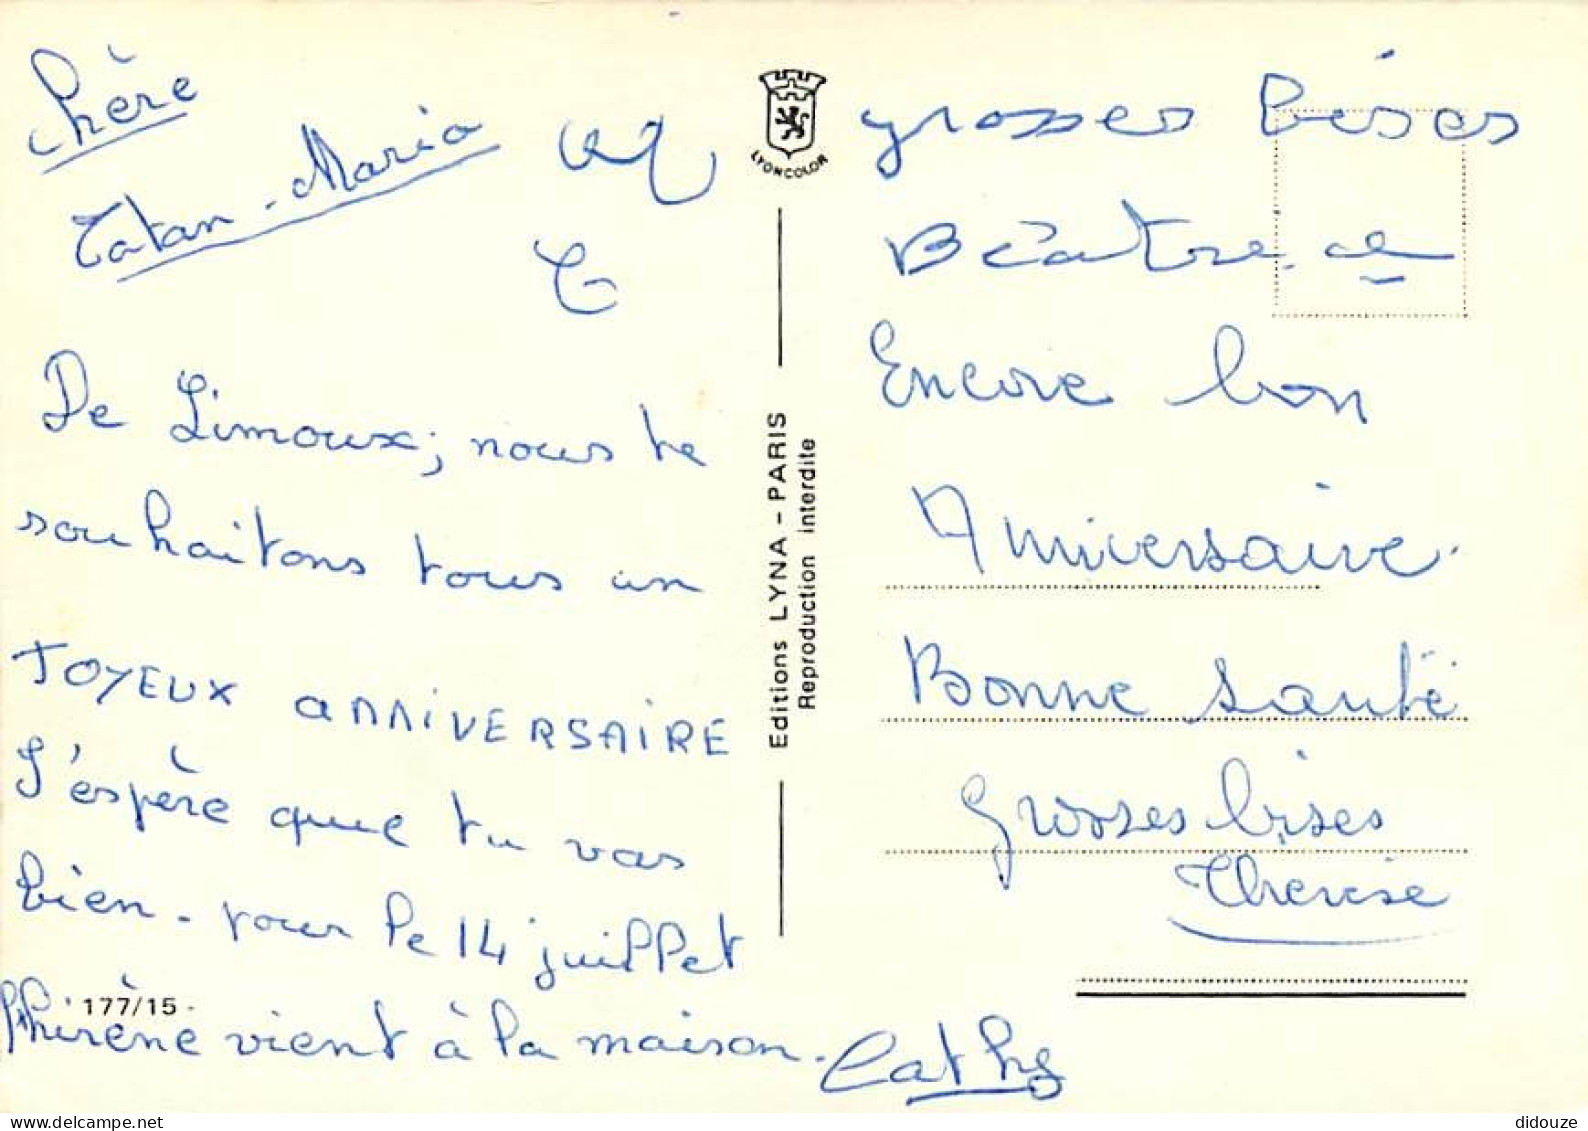 Chère
Tatan-Maria
De Limoux; nous te
souhaitons tous un
JOYEUX ANNIVERSAIRE
J'espère que tu vas
bien - pour le 14 juillet
vient à la maison.
Cathy
177/15
LYONCOLOR
Editions LYNA - PARIS
Reproduction interdite
grosses Béses
Béatre
Encore bon
Anniversaire.
Bonne Santé
Grosses bises
Therese
didouze
www.delcampe.net